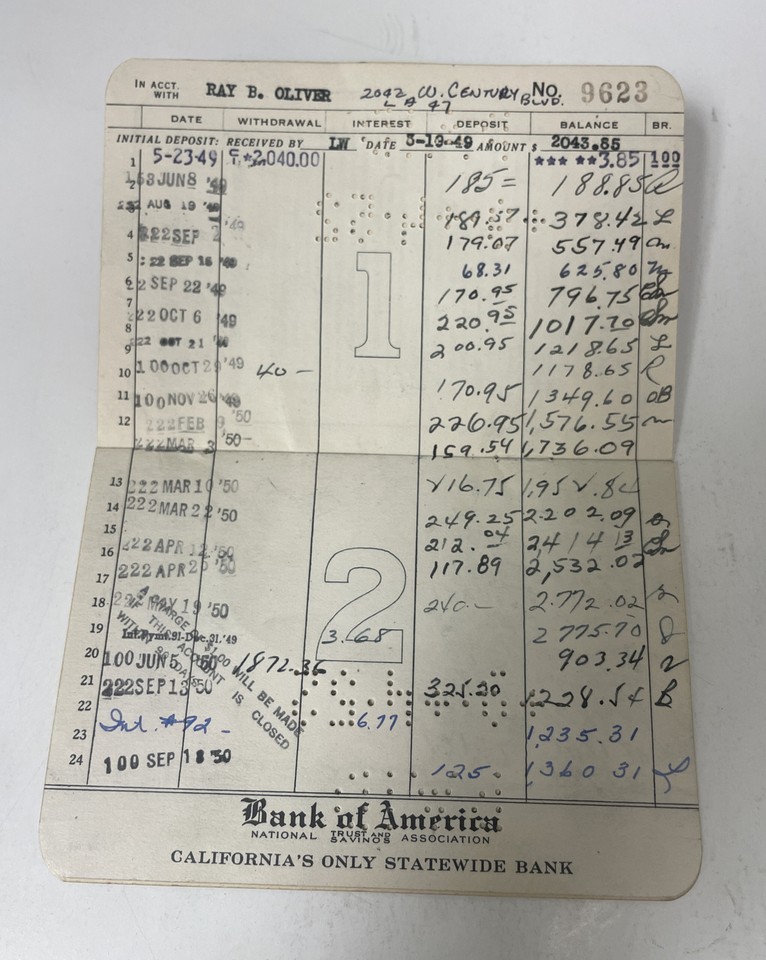 IN ACCT. WITH RAY B. OLIVER 2042 W. CENTURY BLVD. L A 47 No. 9623
DATE WITHDRAWAL INTEREST DEPOSIT BALANCE BR.
INITIAL DEPOSIT: RECEIVED BY LW DATE 5-19-49 AMOUNT $ 2043.85
1 5-23-49 *2,040.00 *** **3.85 100
2 JUN 8 '49 185= 188.85 R
3 AUG 19 '49 189.57 378.42 L
4 222 SEP 2 '49 179.07 557.49
5 22 SEP 16 '49 68.31 625.80
6 22 SEP 22 '49 170.95 796.75
7 22 OCT 6 '49 220.95 1017.70
8 22 OCT 21 '49 200.95 1218.65 L
9 100 OCT 29 '49 40- 1178.65 R
10 100 NOV 26 '49 170.95 1349.60 OB
11 222 FEB 9 '50 226.95 1,576.55
12 222 MAR 3 '50- 159.54 1,736.09
13 222 MAR 10 '50 216.75 1,952.84
14 222 MAR 22 '50 249.25 2202.09
15 222 APR 12 '50 212.04 2,414 13
16 222 APR 25 '50 117.89 2,532.02
17 222 MAY 19 '50 240.- 2.772.02
18 Int Pymt. 91-Dec. 31,'49 3.68 2775.70
19 100 JUN 5 '50 1872.36 903.34
20 222 SEP 13 '50 325.20 1228.54 B
21 Int. #92- 6.77 1,235.31
22 100 SEP 18 '50 125- 1,360 31
23
24
A CHARGE OF $1.00 WILL BE MADE
IF THIS ACCOUNT IS CLOSED
WITHIN 90 DAYS
1
2
Bank of America
NATIONAL TRUST AND SAVINGS ASSOCIATION
CALIFORNIA'S ONLY STATEWIDE BANK